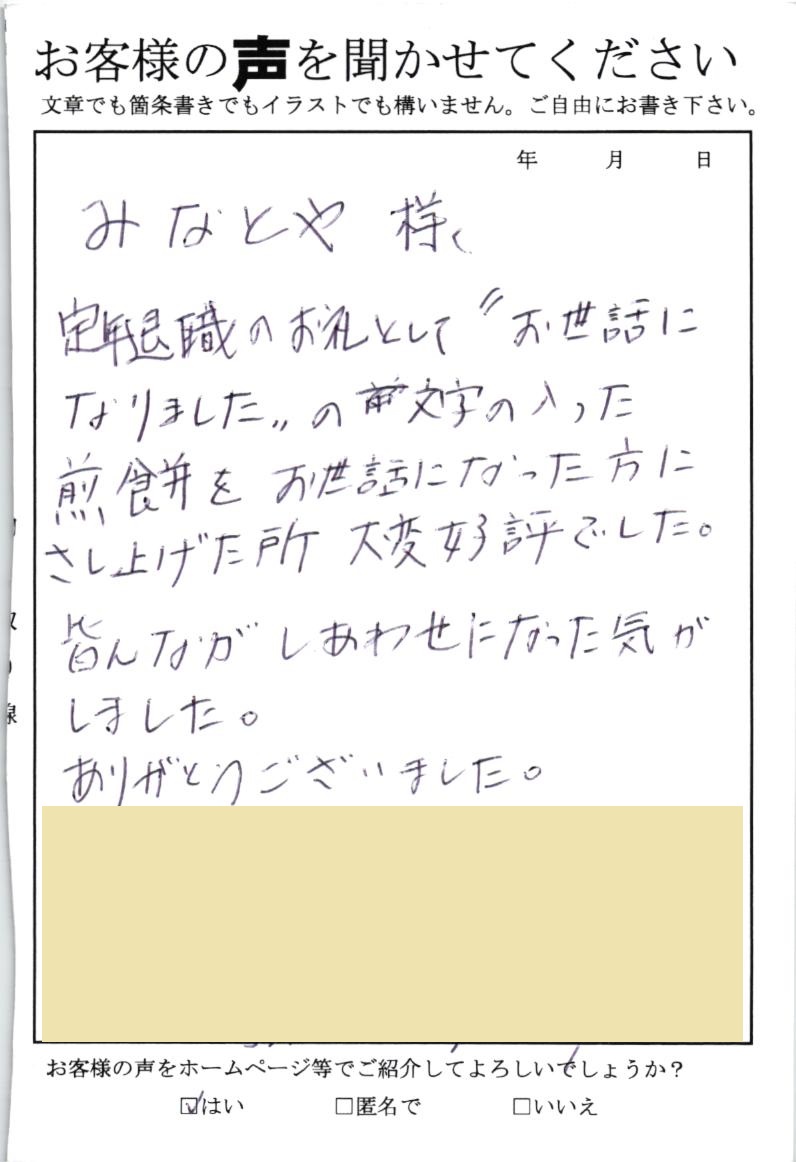 お客様の声を聞かせてください
文章でも箇条書きでもイラストでも構いません。ご自由にお書き下さい。
年 月 日
みなとや 様、
定年退職のお礼として〝お世話に
なりました〟の文字の入った
煎餅を お世話になった方に
さし上げた所 大変好評でした。
皆んなが しあわせになった気が
しました。
ありがとうございました。
お客様の声をホームページ等でご紹介してよろしいでしょうか？
☑はい □匿名で □いいえ